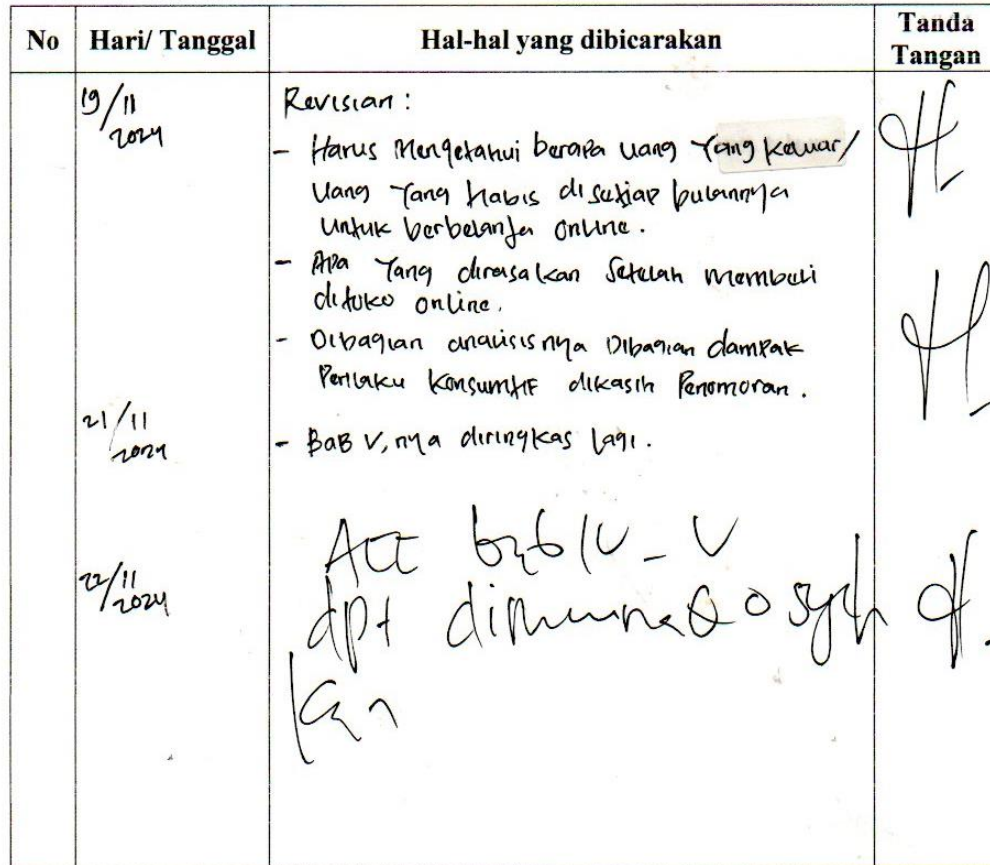 No Hari/ Tanggal Hal-hal yang dibicarakan Tanda Tangan
19/11 2024 Revisian :
- Harus Mengetahui berapa uang Yang keluar/
uang Yang habis disetiap bulannya
untuk berbelanja online.
- Apa Yang dirasakan Setelah membeli
ditoko online.
- Dibagian analisisnya Dibagian dampak
Perilaku Konsumtif dikasih Penomoran.
21/11 2024 - BaB V, nya diringkas lagi.
22/11 2024 Acc bab IV - V
dpt dimunaqosyah
kan